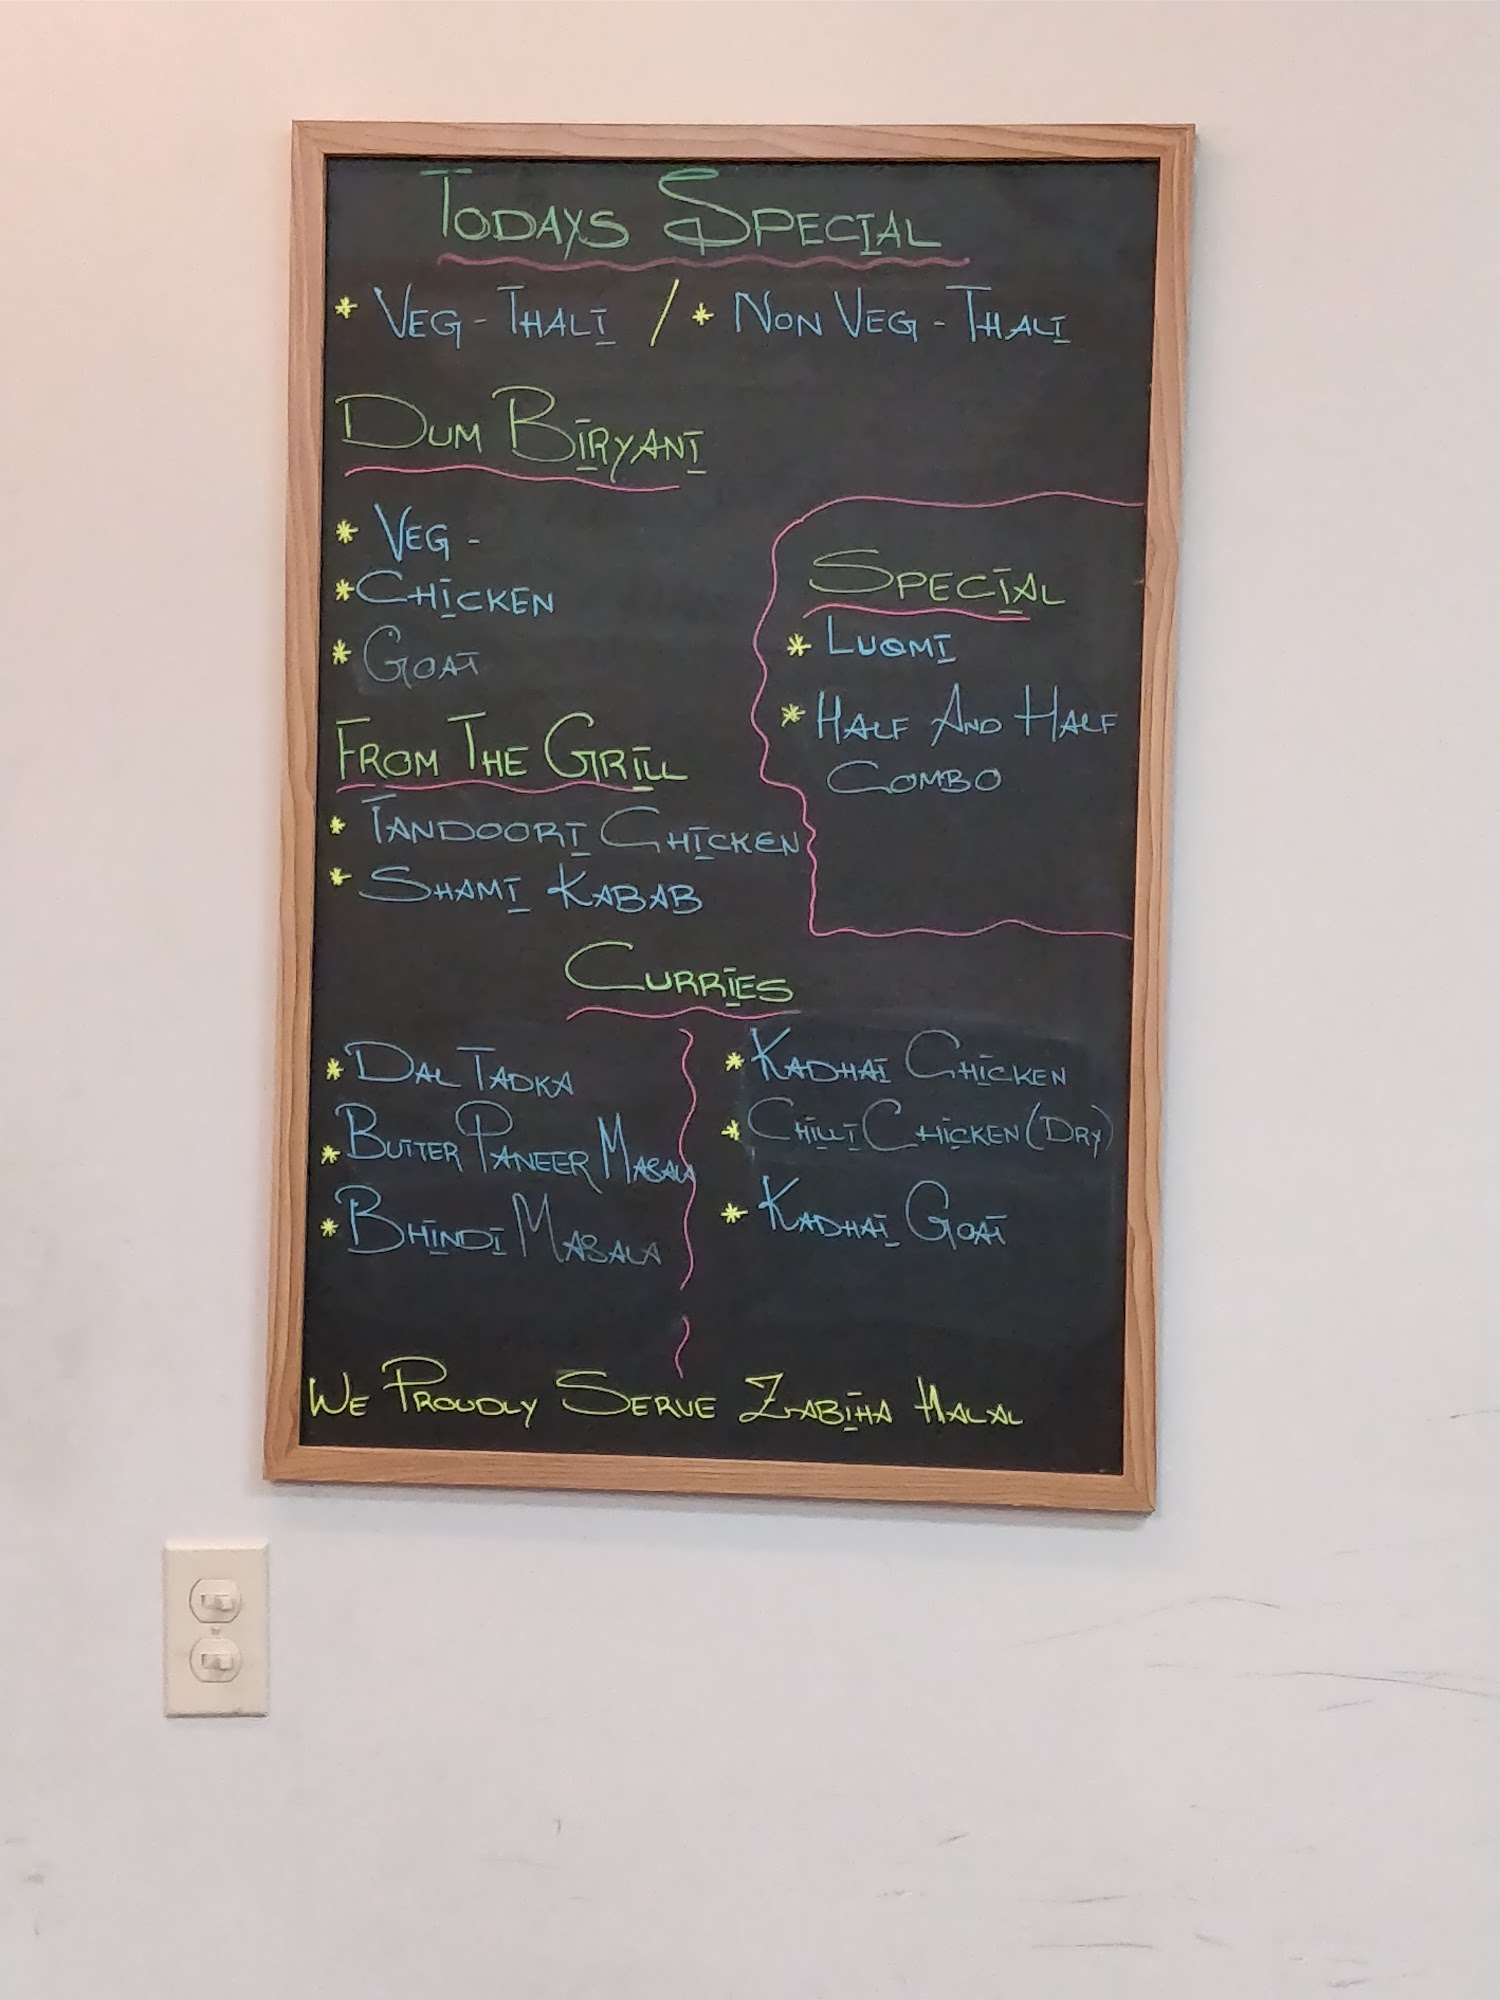 TODAYS SPECIAL
* VEG - THALI / * NON VEG - THALI
DUM BIRYANI
* VEG -
* CHICKEN
* GOAT
SPECIAL
* LUQMI
* HALF AND HALF
COMBO
FROM THE GRILL
* TANDOORI CHICKEN
* SHAMI KABAB
CURRIES
* DAL TADKA
* BUTTER PANEER MASALA
* BHINDI MASALA
* KADHAI CHICKEN
* CHILLI CHICKEN (DRY)
* KADHAI GOAT
WE PROUDLY SERVE ZABIHA HALAL